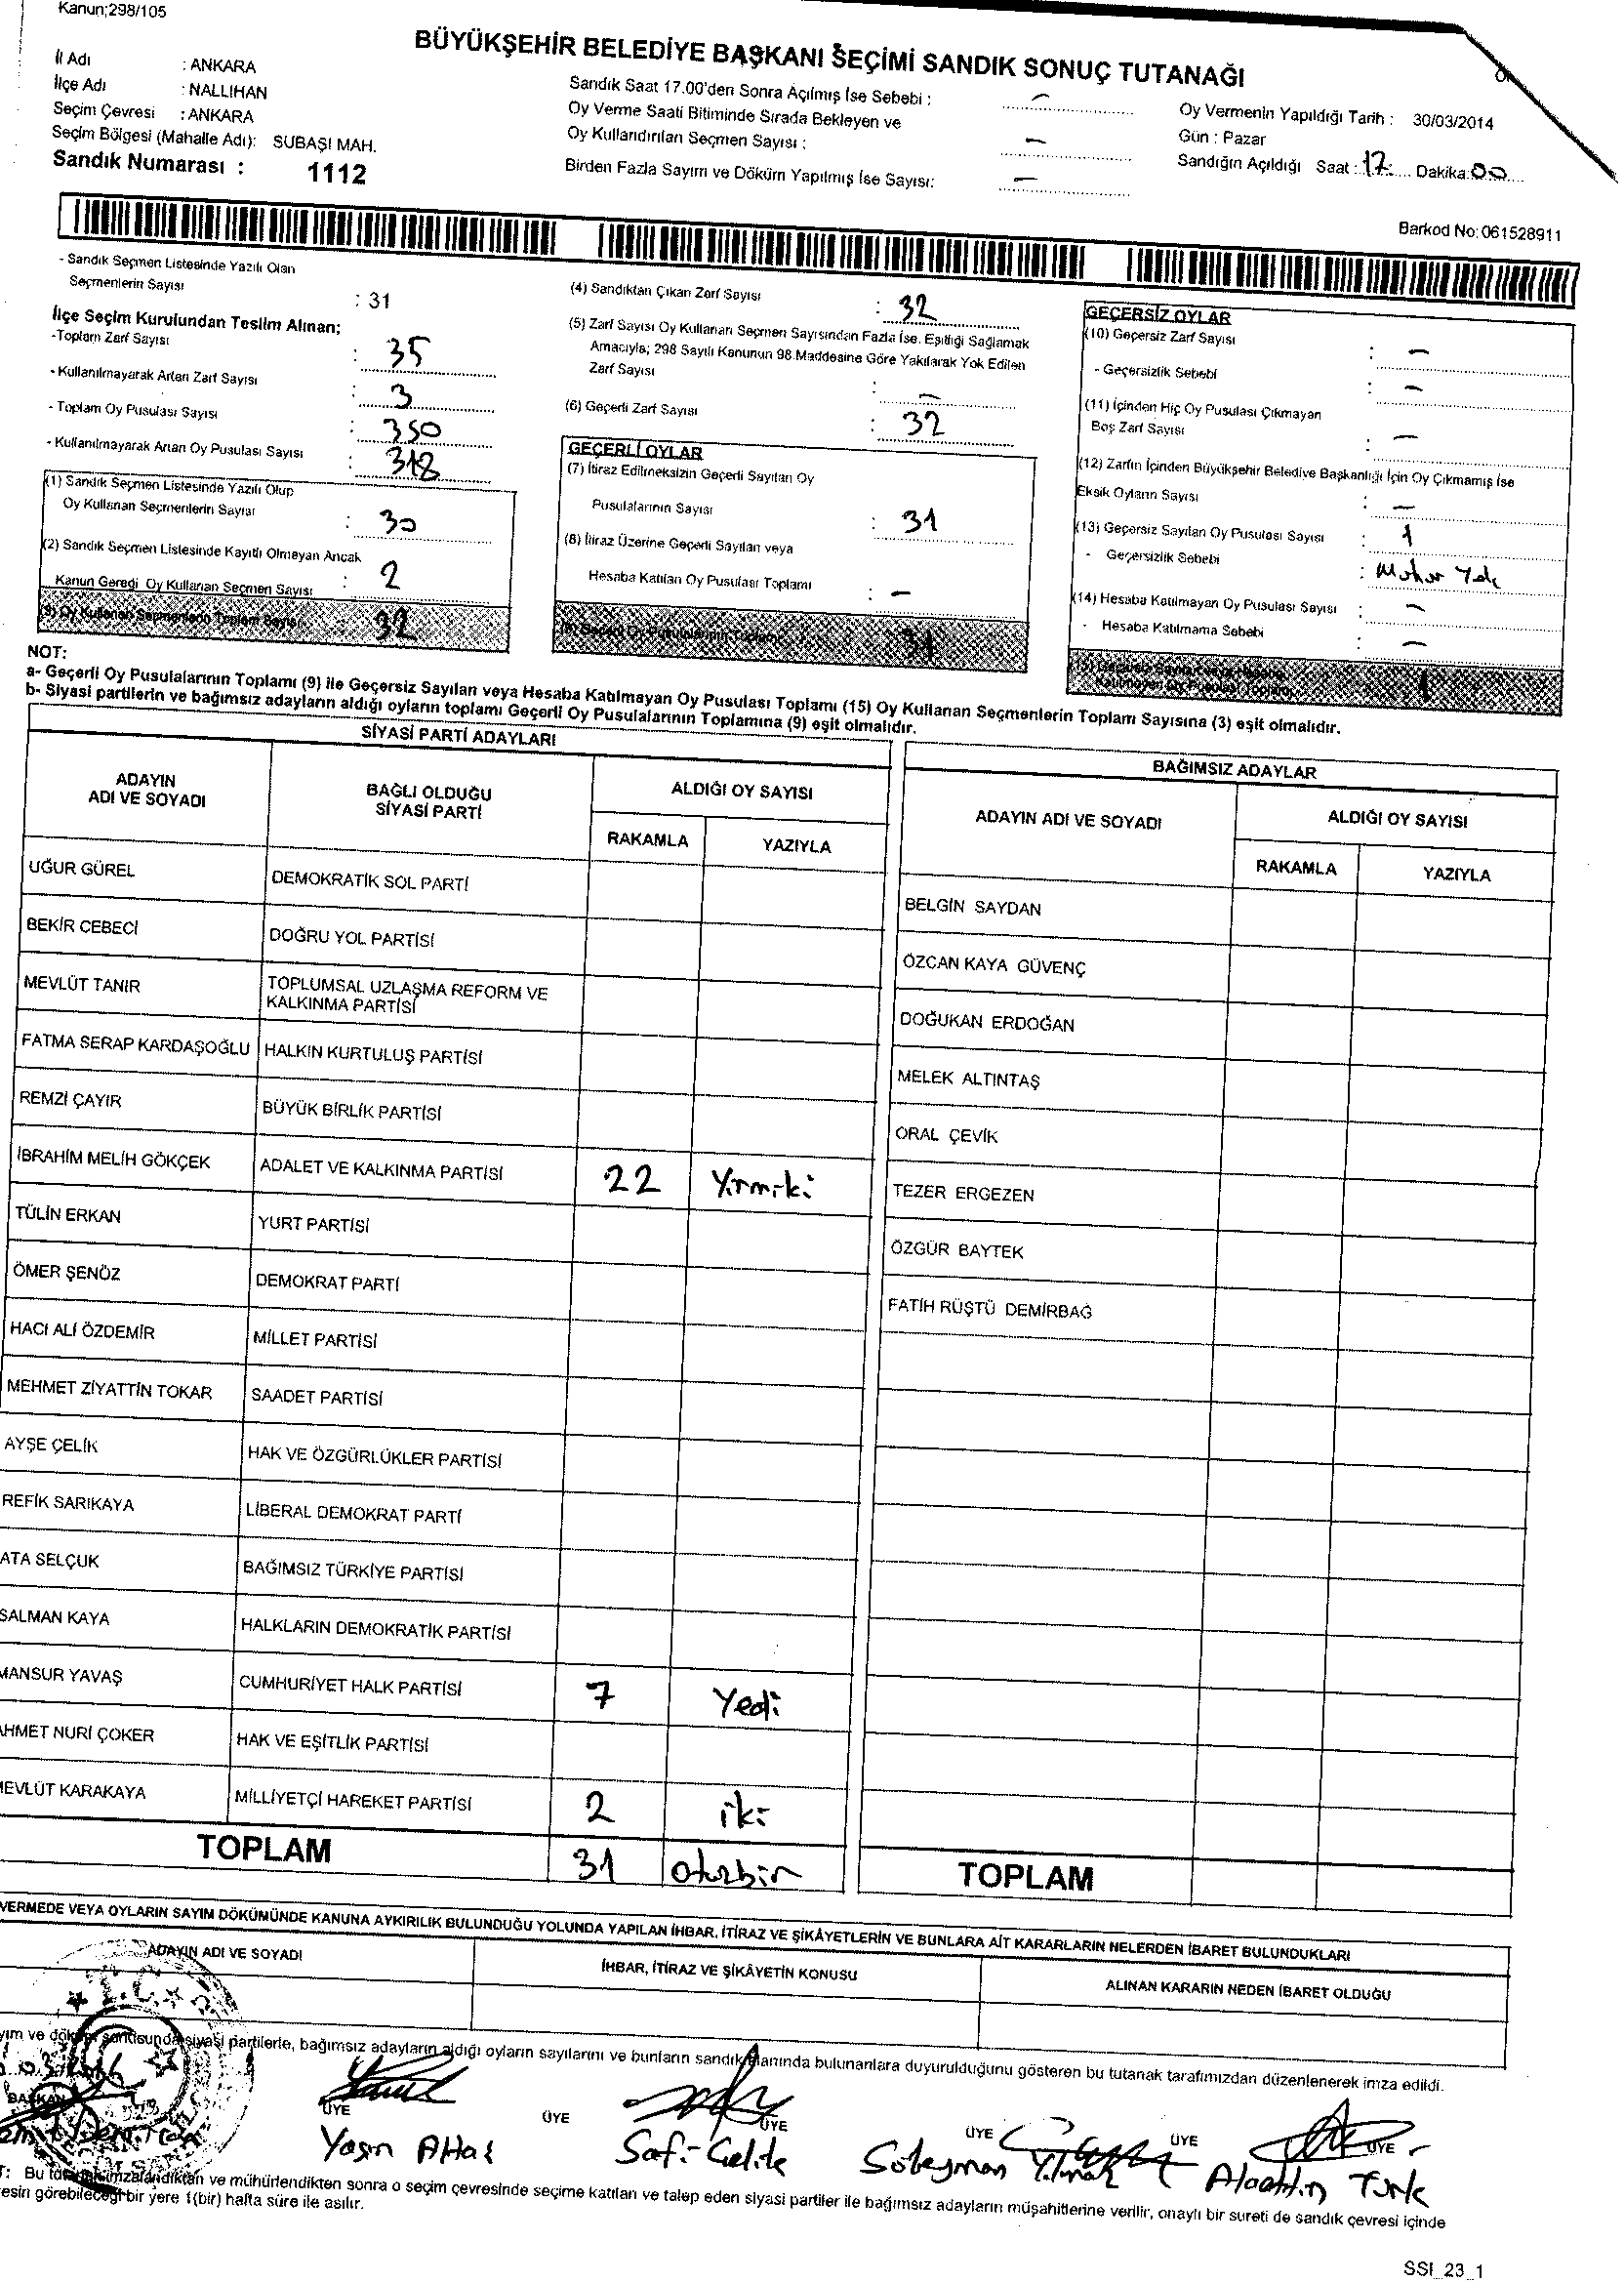 Kanun;298/105
BÜYÜKŞEHİR BELEDİYE BAŞKANI SEÇİMİ SANDIK SONUÇ TUTANAĞI
İl Adı : ANKARA
İlçe Adı : NALLIHAN
Seçim Çevresi : ANKARA
Seçim Bölgesi (Mahalle Adı): SUBAŞI MAH.
Sandık Numarası : 1112
Sandık Saat 17.00'den Sonra Açılmış İse Sebebi : -
Oy Verme Saati Bitiminde Sırada Bekleyen ve
Oy Kullandırılan Seçmen Sayısı : -
Birden Fazla Sayım ve Döküm Yapılmış İse Sayısı: -
Oy Vermenin Yapıldığı Tarih : 30/03/2014
Gün : Pazar
Sandığın Açıldığı Saat : 17 Dakika: 00
Barkod No: 061528911
- Sandık Seçmen Listesinde Yazılı Olan
Seçmenlerin Sayısı : 31
İlçe Seçim Kurulundan Teslim Alınan;
-Toplam Zarf Sayısı : 35
- Kullanılmayarak Artan Zarf Sayısı : 3
- Toplam Oy Pusulası Sayısı : 350
- Kullanılmayarak Artan Oy Pusulası Sayısı : 318
(1) Sandık Seçmen Listesinde Yazılı Olup
Oy Kullanan Seçmenlerin Sayısı : 30
(2) Sandık Seçmen Listesinde Kayıtlı Olmayan Ancak
Kanun Gereği Oy Kullanan Seçmen Sayısı : 2
(3) Oy Kullanan Seçmenlerin Toplam Sayısı 32
(4) Sandıktan Çıkan Zarf Sayısı : 32
(5) Zarf Sayısı Oy Kullanan Seçmen Sayısından Fazla İse. Eşitliği Sağlamak
Amacıyla; 298 Sayılı Kanunun 98.Maddesine Göre Yakılarak Yok Edilen
Zarf Sayısı : -
(6) Geçerli Zarf Sayısı : 32
GEÇERLİ OYLAR
(7) İtiraz Edilmeksizin Geçerli Sayılan Oy
Pusulalarının Sayısı : 31
(8) İtiraz Üzerine Geçerli Sayılan veya
Hesaba Katılan Oy Pusulası Toplamı : -
(9) Geçerli Oy Pusulalarının Toplamı 31
GEÇERSİZ OYLAR
(10) Geçersiz Zarf Sayısı : -
- Geçersizlik Sebebi : -
(11) İçinden Hiç Oy Pusulası Çıkmayan
Boş Zarf Sayısı : -
(12) Zarfın İçinden Büyükşehir Belediye Başkanlığı İçin Oy Çıkmamış İse
Eksik Oyların Sayısı : -
(13) Geçersiz Sayılan Oy Pusulası Sayısı : 1
- Geçersizlik Sebebi : Mühür Yok
(14) Hesaba Katılmayan Oy Pusulası Sayısı : -
- Hesaba Katılmama Sebebi : -
(15) Geçersiz Sayılan veya Hesaba
Katılmayan Oy Pusulası Toplamı 1
NOT:
a- Geçerli Oy Pusulalarının Toplamı (9) ile Geçersiz Sayılan veya Hesaba Katılmayan Oy Pusulası Toplamı (15) Oy Kullanan Seçmenlerin Toplam Sayısına (3) eşit olmalıdır.
b- Siyasi partilerin ve bağımsız adayların aldığı oyların toplamı Geçerli Oy Pusulalarının Toplamına (9) eşit olmalıdır.
SİYASİ PARTİ ADAYLARI
ADAYIN ADI VE SOYADI
BAĞLI OLDUĞU SİYASİ PARTİ
ALDIĞI OY SAYISI
RAKAMLA YAZIYLA
UĞUR GÜREL DEMOKRATİK SOL PARTİ
BEKİR CEBECİ DOĞRU YOL PARTİSİ
MEVLÜT TANIR TOPLUMSAL UZLAŞMA REFORM VE
KALKINMA PARTİSİ
FATMA SERAP KARDAŞOĞLU HALKIN KURTULUŞ PARTİSİ
REMZİ ÇAYIR BÜYÜK BİRLİK PARTİSİ
İBRAHİM MELİH GÖKÇEK ADALET VE KALKINMA PARTİSİ 22 Yirmiki
TÜLİN ERKAN YURT PARTİSİ
ÖMER ŞENÖZ DEMOKRAT PARTİ
HACI ALİ ÖZDEMİR MİLLET PARTİSİ
MEHMET ZİYATTİN TOKAR SAADET PARTİSİ
AYŞE ÇELİK HAK VE ÖZGÜRLÜKLER PARTİSİ
REFİK SARIKAYA LİBERAL DEMOKRAT PARTİ
ATA SELÇUK BAĞIMSIZ TÜRKİYE PARTİSİ
SALMAN KAYA HALKLARIN DEMOKRATİK PARTİSİ
MANSUR YAVAŞ CUMHURİYET HALK PARTİSİ 7 Yedi
AHMET NURİ ÇOKER HAK VE EŞİTLİK PARTİSİ
MEVLÜT KARAKAYA MİLLİYETÇİ HAREKET PARTİSİ 2 iki
TOPLAM 31 Otuzbir
BAĞIMSIZ ADAYLAR
ADAYIN ADI VE SOYADI
ALDIĞI OY SAYISI
RAKAMLA YAZIYLA
BELGİN SAYDAN
ÖZCAN KAYA GÜVENÇ
DOĞUKAN ERDOĞAN
MELEK ALTINTAŞ
ORAL ÇEVİK
TEZER ERGEZEN
ÖZGÜR BAYTEK
FATİH RÜŞTÜ DEMİRBAĞ
TOPLAM
VERMEDE VEYA OYLARIN SAYIM DÖKÜMÜNDE KANUNA AYKIRILIK BULUNDUĞU YOLUNDA YAPILAN İHBAR, İTİRAZ VE ŞİKÂYETLERİN VE BUNLARA AİT KARARLARIN NELERDEN İBARET BULUNDUKLARI
ADAYIN ADI VE SOYADI
İHBAR, İTİRAZ VE ŞİKÂYETİN KONUSU
ALINAN KARARIN NEDEN İBARET OLDUĞU
yım ve döküm sonucunda siyasi partilerle, bağımsız adayların aldığı oyların sayılarını ve bunların sandık alanında bulunanlara duyurulduğunu gösteren bu tutanak tarafımızdan düzenlenerek imza edildi.
BAŞKAN ÜYE ÜYE ÜYE ÜYE ÜYE ÜYE
T.C.
Yaşın Safi Süleyman Yılmaz Alaattin Türk
T: Bu tutanak imzalandıktan ve mühürlendikten sonra o seçim çevresinde seçime katılan ve talep eden siyasi partiler ile bağımsız adayların müşahitlerine verilir, onaylı bir sureti de sandık çevresi içinde
esin görebileceği bir yere 1(bir) hafta süre ile asılır.
SSI_23_1